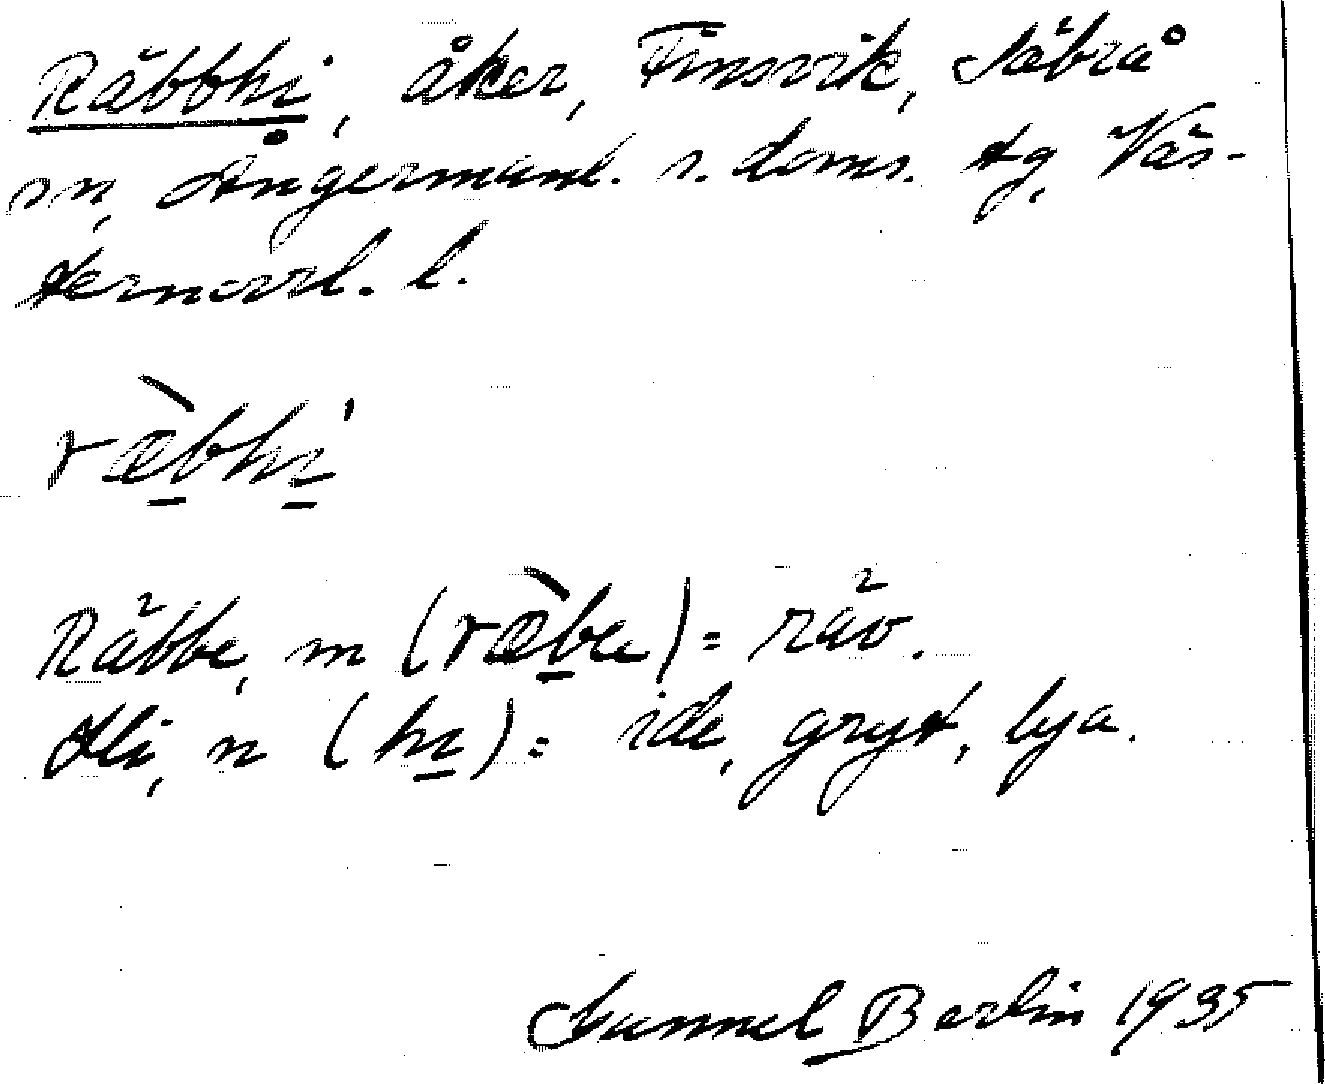 Räbbhi, åker, Finsvik, Säbrå
sn, Ångermanl. s. doms. tg, Väs-
ternorrl. l.
ræ̀bhi'
Räbbe, m (ræ̀be) = räv.
Hi, n (hi) = ide, gryt, lya.
Gunnel Berlin 1935